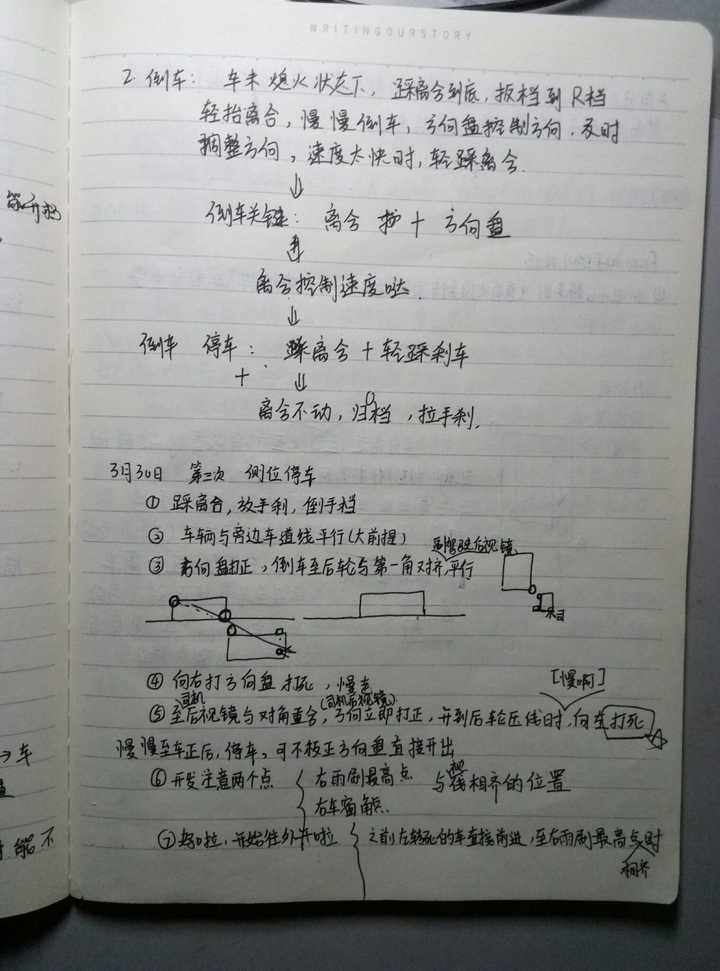 WRITINGOURSTORY
2. 倒车： 车未熄火状态下， 踩离合到底，扳档到R档
轻抬离合，慢慢倒车，方向盘控制方向，及时
调整方向，速度太快时，轻踩离合.
倒车关键： 离合 + 方向盘
离合控制速度哒.
倒车 停车： 踩离合 + 轻踩刹车
+
离合不动，归0档，拉手刹.
3月30日 第三次 侧位停车
① 踩离合，放手刹，倒手档
② 车辆与旁边车道线平行(大前提)
副驾驶后视镜
③ 方向盘打正，倒车至后轮与第一角对齐,平行
④ 向右打方向盘打死，慢走
[慢啊]
司机 (司机后视镜)
⑤ 至后视镜与对角重合，方向立即打正，开到后轮压线时，向左打死
慢慢至车正后，停车，可不扳正方向盘直接开出
⑥ 开发注意两个点 右雨刷最高点 与线相齐的位置
右车窗角点.
⑦ 好啦，开始往外开啦 之前左转死的车直接前进，至右雨刷最高点时
相齐
→车
能不